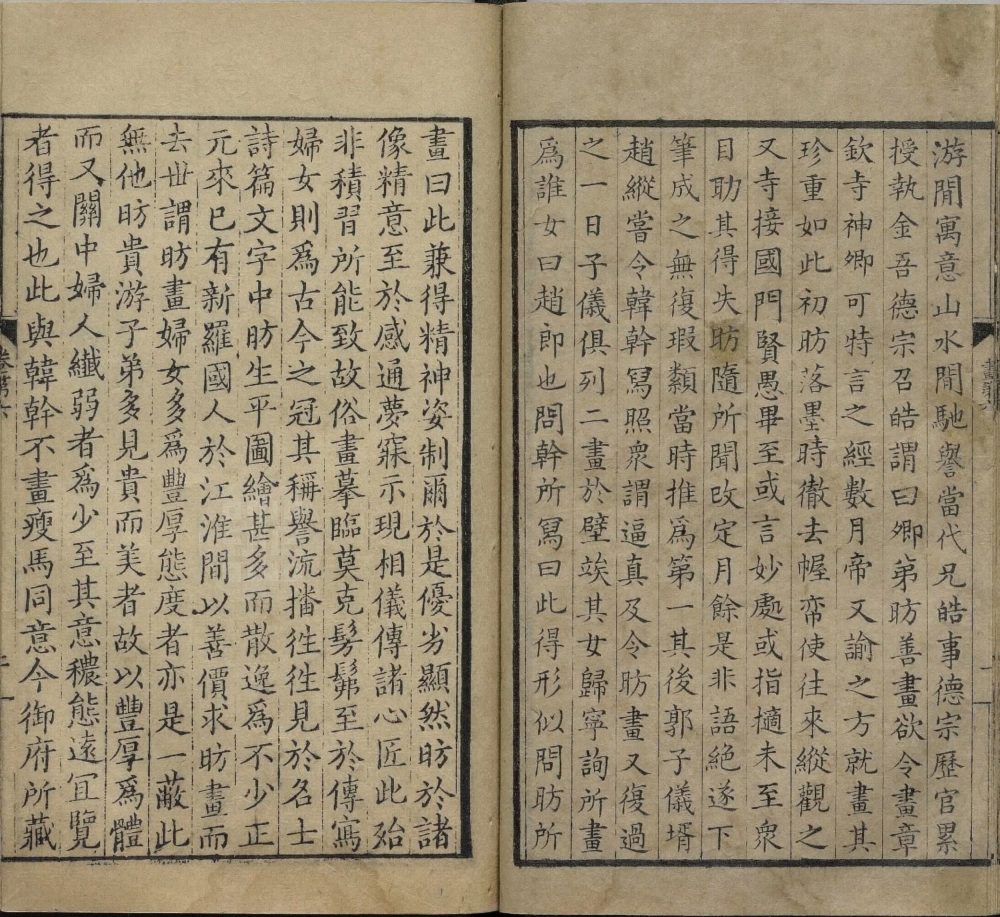 游閒寓意山水間馳譽當代兄皓事德宗歷官累
授執金吾德宗召皓謂曰卿弟昉善畫欲令畫章
欽寺神卿可特言之經數月帝又諭之方就畫其
珍重如此初昉落墨時徹去幄帟使往來縱觀之
又寺接國門賢愚畢至或言妙處或指擿未至衆
目助其得失昉隨所聞改定月餘是非語絕遂下
筆成之無復瑕纇當時推爲第一其後郭子儀壻
趙縱嘗令韓幹冩照衆謂逼真及令昉畫又復過
之一日子儀俱列二畫於壁竢其女歸寧詢所畫
爲誰女曰趙郎也問幹所冩曰此得形似問昉所
畫曰此兼得精神姿制爾於是優劣顯然昉於諸
像精意至於感通夢寐示現相儀傳諸心匠此殆
非積習所能致故俗畫摹臨莫克髣髴至於傳寫
婦女則爲古今之冠其稱譽流播徃徃見於名士
詩篇文字中昉生平圖繪甚多而散逸爲不少正
元來已有新羅國人於江淮間以善價求昉畫而
去丗謂昉畫婦女多爲豐厚態度者亦是一蔽此
無他昉貴游子弟多見貴而美者故以豐厚爲體
而又關中婦人纖弱者爲少至其意穠態遠宜覽
者得之也此與韓幹不畫瘦馬同意今御府所藏
卷第六